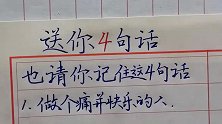 送你4句话
也请你记住这4句话
1.做个痛并快乐的人.